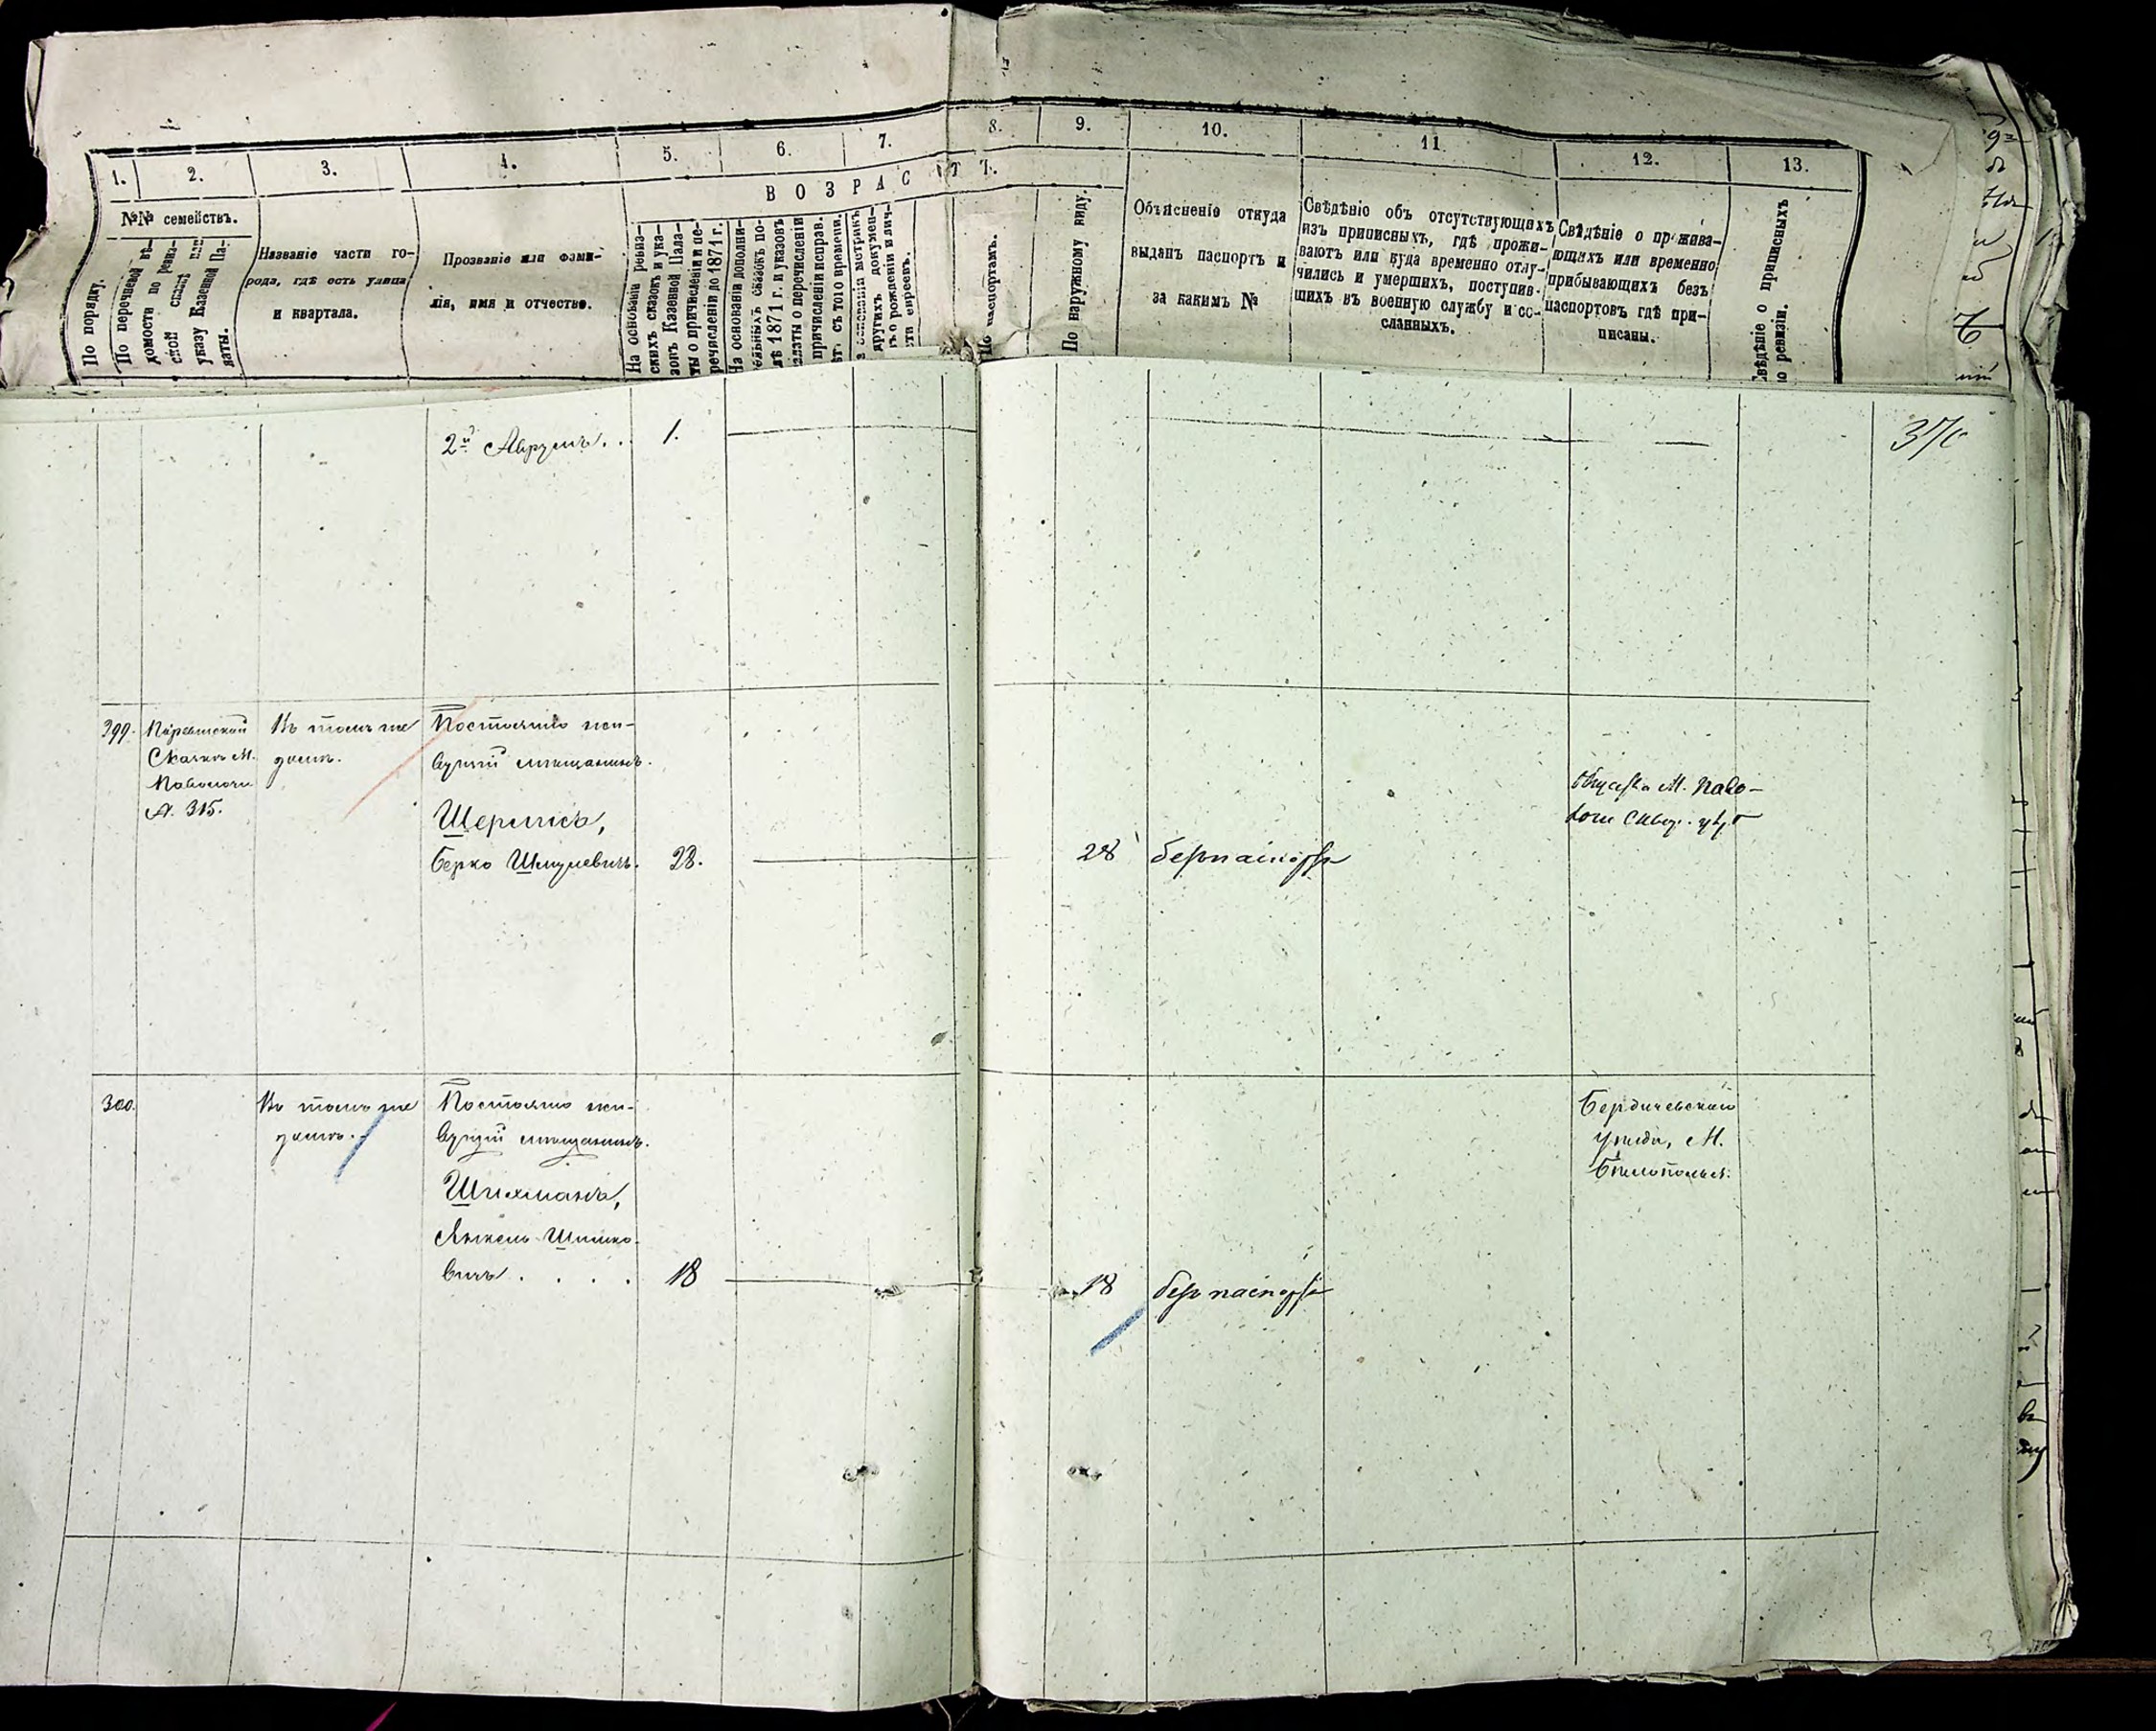 1.
2.
3.
4.
5.
6.
7.
8.
9.
10.
11.
12.
13.
№№ семействъ.
ВОЗРАСТЪ.
По порядку.
По перечневой вѣ-
домости по ревиз-
ской сказкѣ или
указу Казенной Па-
латы.
Названіе части го-
рода, гдѣ есть улица
и квартала.
Прозваніе или фами-
лія, имя и отчество.
На основаніи ревиз-
скихъ сказокъ и ука-
зовъ Казенной Пала-
ты о причисленіи и пе-
речисленіи до 1871 г.
На основаніи дополни-
тельныхъ сказокъ по-
слѣ 1871 г. и указовъ
палаты о перечисленіи
причисленіи исправ.
съ того времени.
основаніи метрикъ
другихъ докумен-
о рожденіи и лич-
евреевъ.
По паспортамъ.
По наружному виду.
Объясненіе откуда
выданъ паспортъ и
за какимъ №
Свѣдѣніе объ отсутствующихъ
изъ приписныхъ, гдѣ прожи-
ваютъ или куда временно отлу-
чились и умершихъ, поступив-
шихъ въ военную службу и со-
сланныхъ.
Свѣдѣніе о прожива-
ющихъ или временно
прибывающихъ безъ
паспортовъ гдѣ при-
писаны.
Свѣдѣніе о приписныхъ
по ревизіи.
2й Аврумъ . .
1.
299.
Сказкѣ М.
Паволочи
№. 315.
Въ томъ же
домѣ.
Постоянно жи-
вущій мѣщанинъ.
Берко Шмулевичъ.
28.
28
безъ паспорта
общества М. Паво-
лочи Сквир. уѣз.
300.
Въ томъ же
домѣ.
Постоянно жи-
вущій мѣщанинъ.
Шихманъ,
Янкель Шимко-
вичъ . . . .
18
18
безъ паспорта
Бердичевскаго
уѣзда, М.
Бѣлополья.